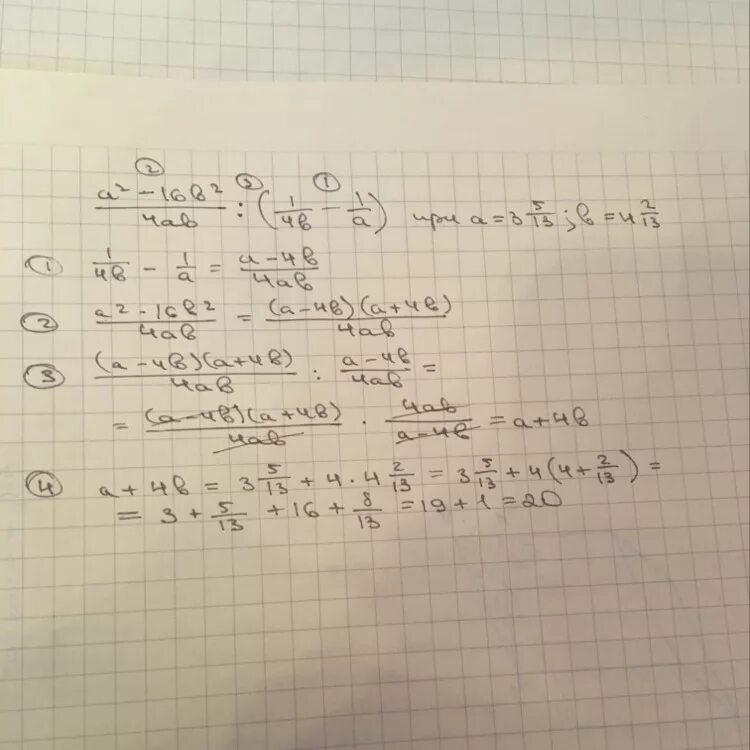 ② ③ ①
(a² - 16в²)/(4ав) : (1/(4в) - 1/a) при a = 3 5/13 ; в = 4 2/13
① 1/(4в) - 1/a = (a - 4в)/(4ав)
② (a² - 16в²)/(4ав) = ((a - 4в)(a + 4в))/(4ав)
③ ((a - 4в)(a + 4в))/(4ав) : (a - 4в)/(4ав) =
= ((a - 4в)(a + 4в))/(4ав) · (4ав)/(a - 4в) = a + 4в
④ a + 4в = 3 5/13 + 4 · 4 2/13 = 3 5/13 + 4(4 + 2/13) =
= 3 + 5/13 + 16 + 8/13 = 19 + 1 = 20